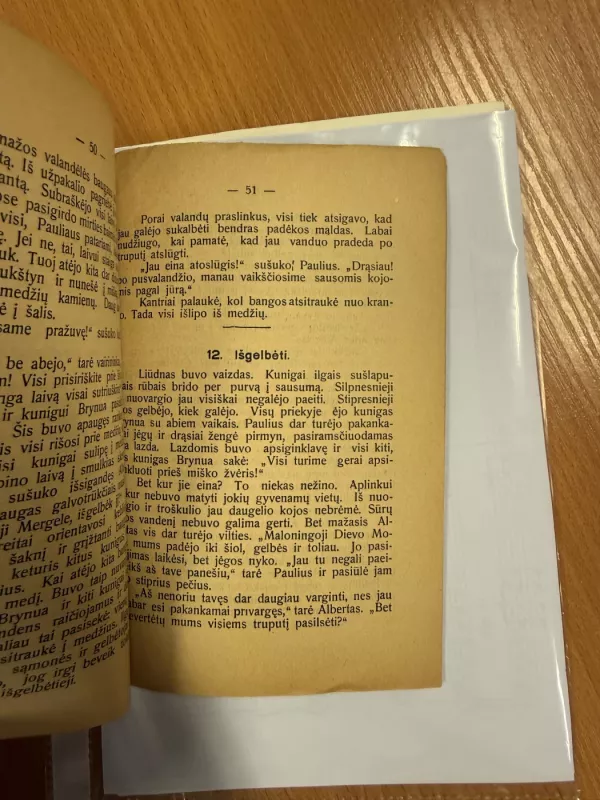 — 50 —
mažos valandėlės baugau
tą. Iš užpakalio
antą. Subraškėjo visi
ose pasigirdo mirties
visi, Pauliaus patariami,
ę. Jei ne, tai, laivui
uk. Tuoj atėjo kita
ukštyn ir nunešė į
medžių kamienų. Daug
ė į šalis.
same pražuvę!“
be abejo,“ tarė
n! Visi prisiriškite prie
nga laivą visai
ir kunigui Brynua
Šis buvo apaugęs
is visi rišosi prie
isi kunigai sulipę į
bino laivą į smulkias
sušuko išsigandęs
augas galvotrūkčiais
ji Mergele, išgelbėk
reitai orientavosi
šaknį ir grįžtanti
keturis kitus kunigus
ius. Kai atėjo kita
medį. Buvo taip
Brynua ir kiti kunigai
ndens raičiojamus ir
aliau tai pasisekė.
sitraukė į medžius.
sąmonės ir gelbėto
jog irgi beveik
išgelbėtieji.
— 51 —
Porai valandų praslinkus, visi tiek atsigavo, kad
jau galėjo sukalbėti bendras padėkos maldas. Labai
nudžiugo, kai pamatė, kad jau vanduo pradeda po
truputį atslūgti.
„Jau eina atoslūgis!“ sušuko Paulius. „Drąsiau!
po pusvalandžio, manau vaikščiosime sausomis kojo-
mis pagal jūrą.“
Kantriai palaukė, kol bangos atsitraukė nuo kran-
o. Tada visi išlipo iš medžių.
12. Išgelbėti.
Liūdnas buvo vaizdas. Kunigai ilgais sušlapu-
ais rūbais brido per purvą į sausumą. Silpnesnieji
nuovargio jau visiškai negalėjo paeiti. Stipresnieji
os gelbėjo, kiek galėjo. Visų priekyje ėjo kunigas
rynua su abiem vaikais. Paulius dar turėjo pakanka-
ai jėgų ir drąsiai žengė pirmyn, pasiramsčiuodamas
a lazda. Lazdomis buvo apsiginklavę ir visi kiti,
s kunigas Brynua sakė: „Visi turime gerai apsi-
nkluoti prieš miško žvėris!“
Bet kur jie eina? To niekas nežino. Aplinkui
kur nebuvo matyti jokių gyvenamų vietų. Iš nuo-
gio ir troškulio jau daugelio kojos nebrėmė. Sūrų
os vandenį nebuvo galima gerti. Bet mažasis Al-
tas vis dar turėjo vilties. „Maloningoji Dievo Mo-
mums padėjo iki šiol, gelbės ir toliau. Jo pasi-
imas laikėsi, bet jėgos nyko. „Jau tu negali paei-
ikš aš tave panešiu,“ tarė Paulius ir pasiūlė jam
stiprius pečius.
„Aš nenoriu tavęs dar daugiau varginti, nes jau
abar esi pakankamai privargęs,“ tarė Albertas. „Bet
evertėtų mums visiems truputį pasilsėti?“